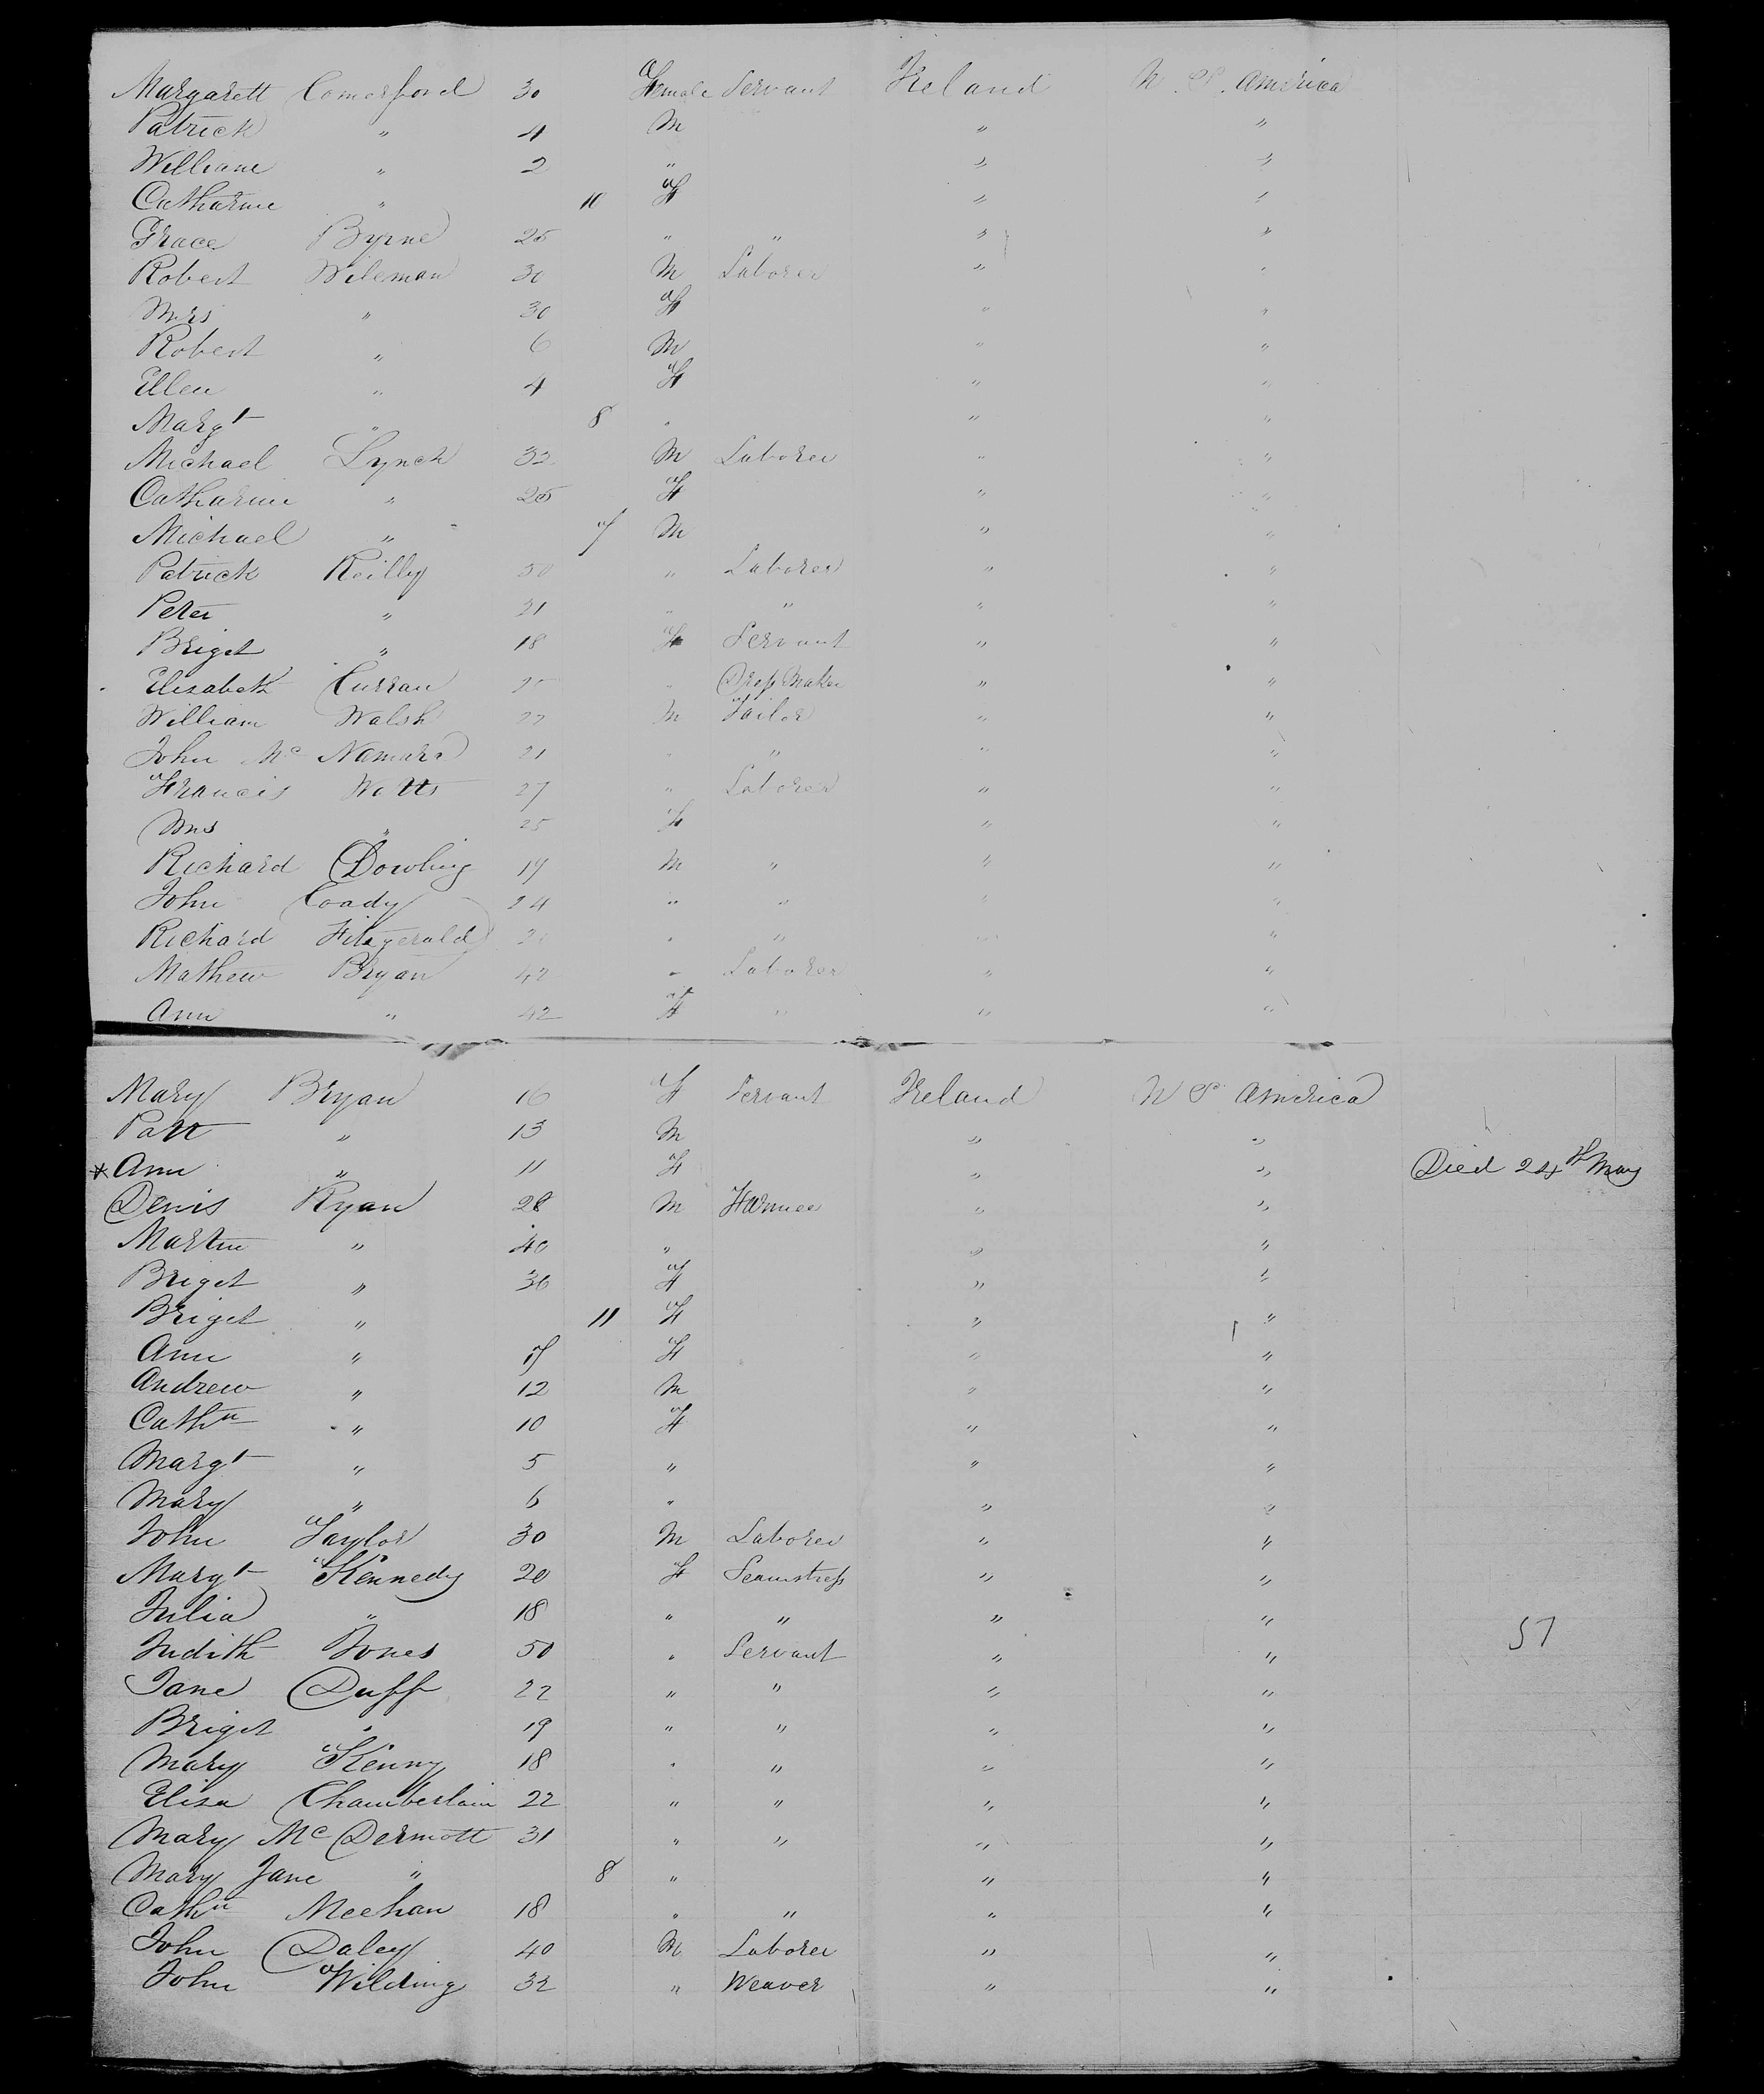 Margarett Comerford 30 Female Servant Ireland N. S. America
Patrick " 4 M " "
William " 2 " " "
Catharine " 10 F " "
Grace Byrne 25 " " " "
Robert Wileman 30 M Laborer " "
Mrs " 30 F " "
Robert " 6 M " "
Ellen " 4 F " "
Margt " 8 " " "
Michael Lynch 32 M Laborer " "
Catharine " 25 F " "
Michael " 7 M " "
Patrick Reilly 50 " Laborer " "
Peter " 21 " " " "
Briget " 18 F Servant " "
Elizabeth Curran " Dress Maker " "
William Walsh 22 M Tailor " "
John Mc Namara 21 " " " "
Francis Watts 27 " Laborer " "
Mrs " 25 F " "
Richard Dowling 19 M " " "
John Coady 24 " " " "
Richard Fitzgerald " " " "
Mathew Bryan 42 " Laborer " "
Ann " 42 F " " "
Mary Bryan 16 F Servant Ireland N S America
Patt " 13 M " "
* Ann " 11 F " " Died 24th May
Denis Ryan 28 M Farmer " "
Martin " 40 " " "
Briget " 36 F " "
Briget " 11 F " "
Ann " F " "
Andrew " 12 M " "
Cathn " 10 F " "
Margt " 5 " " "
Mary " 6 " " "
John Taylor 30 M Laborer " "
Margt Kennedy 20 F Seamstress " "
Julia " 18 " " " " 51
Judith Jones 50 " Servant " "
Jane Duff 22 " " " "
Briget " 19 " " " "
Mary Kenny 18 " " " "
Eliza Chamberlain 22 " " " "
Mary Mc Dermott 31 " " " "
Mary Jane " 8 " " "
Cathn Meehan 18 " " " "
John Daley 40 M Laborer " "
John Wilding 32 " Weaver " "